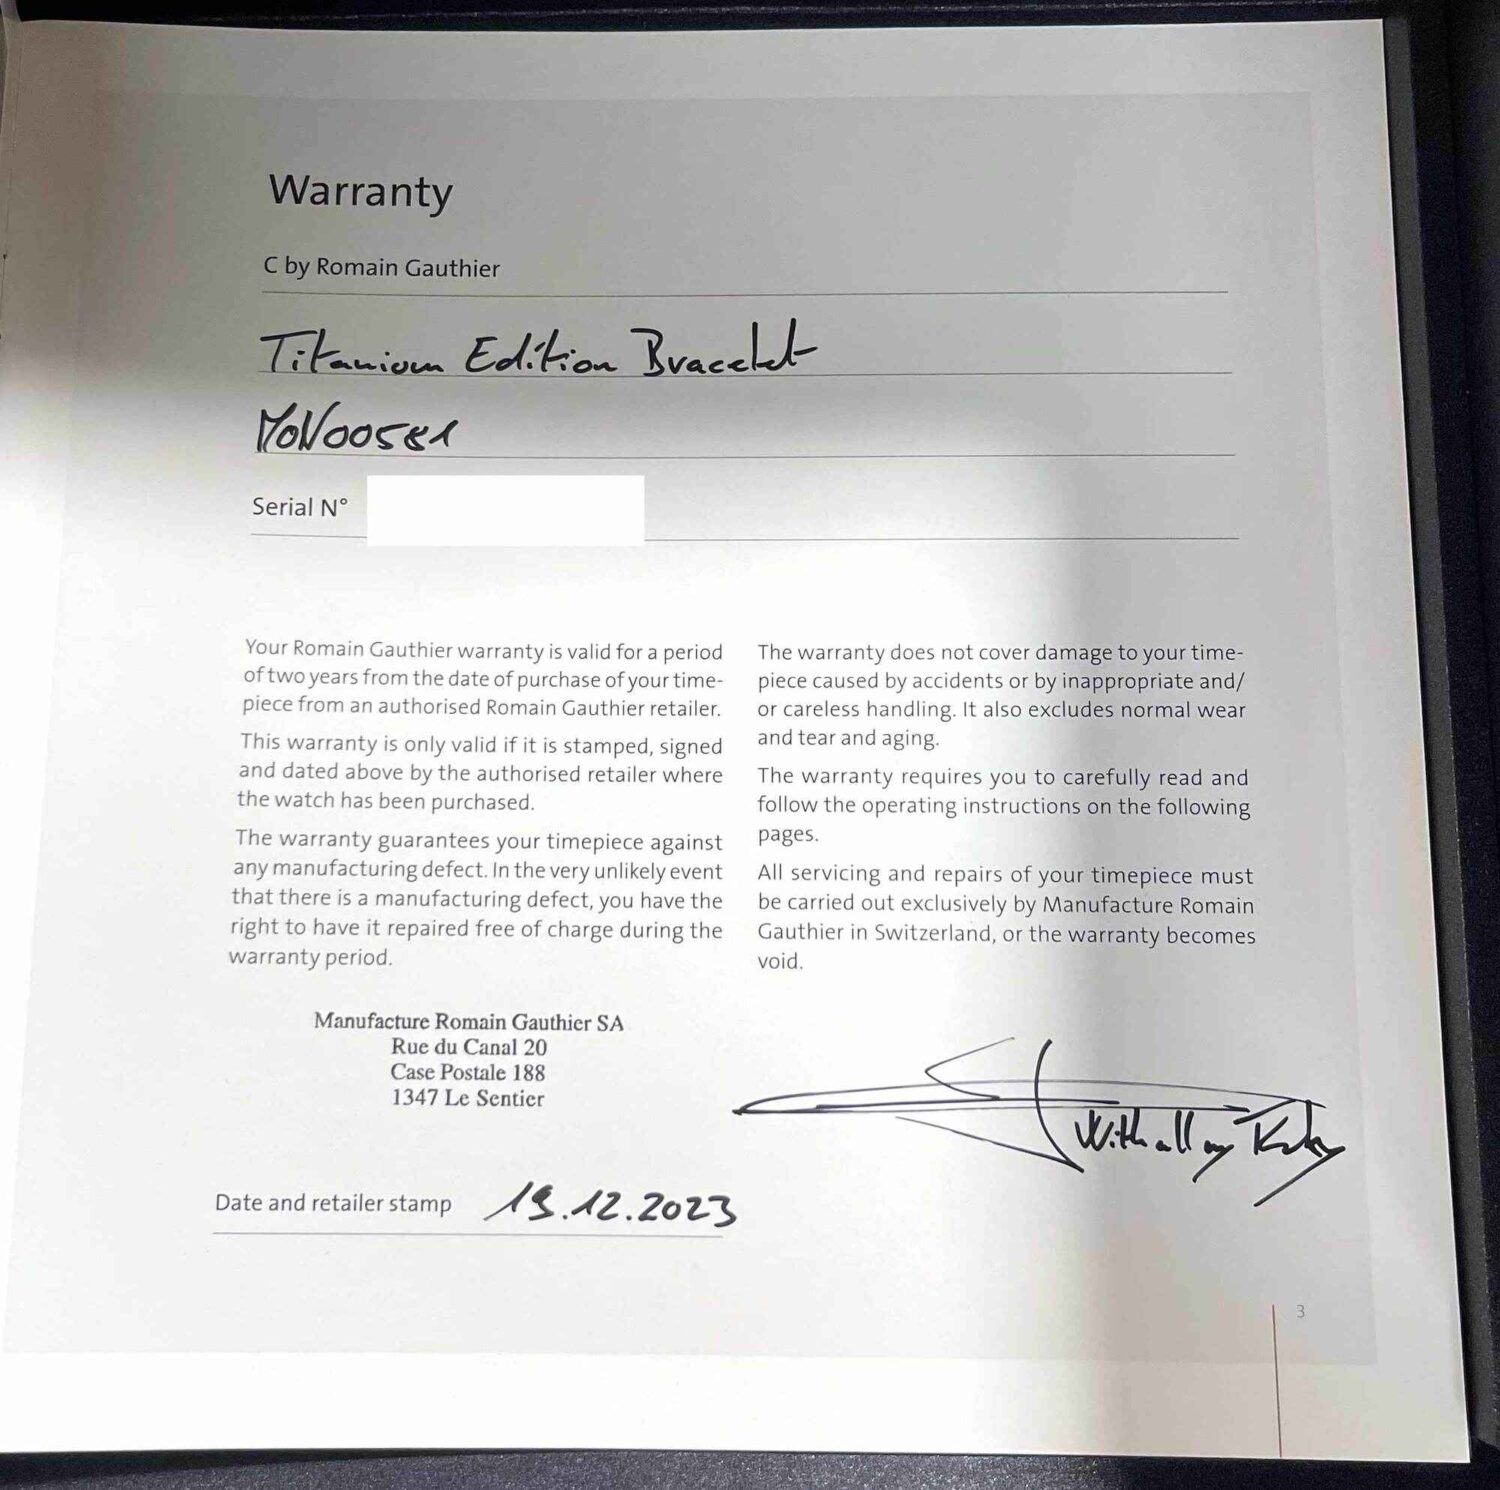 Warranty
C by Romain Gauthier
Titanium Edition Bracelet
MON00581
Serial N°
Your Romain Gauthier warranty is valid for a period
of two years from the date of purchase of your time-
piece from an authorised Romain Gauthier retailer.
This warranty is only valid if it is stamped, signed
and dated above by the authorised retailer where
the watch has been purchased.
The warranty guarantees your timepiece against
any manufacturing defect. In the very unlikely event
that there is a manufacturing defect, you have the
right to have it repaired free of charge during the
warranty period.
The warranty does not cover damage to your time-
piece caused by accidents or by inappropriate and/
or careless handling. It also excludes normal wear
and tear and aging.
The warranty requires you to carefully read and
follow the operating instructions on the following
pages.
All servicing and repairs of your timepiece must
be carried out exclusively by Manufacture Romain
Gauthier in Switzerland, or the warranty becomes
void.
Manufacture Romain Gauthier SA
Rue du Canal 20
Case Postale 188
1347 Le Sentier
With all my
Date and retailer stamp 19.12.2023
3